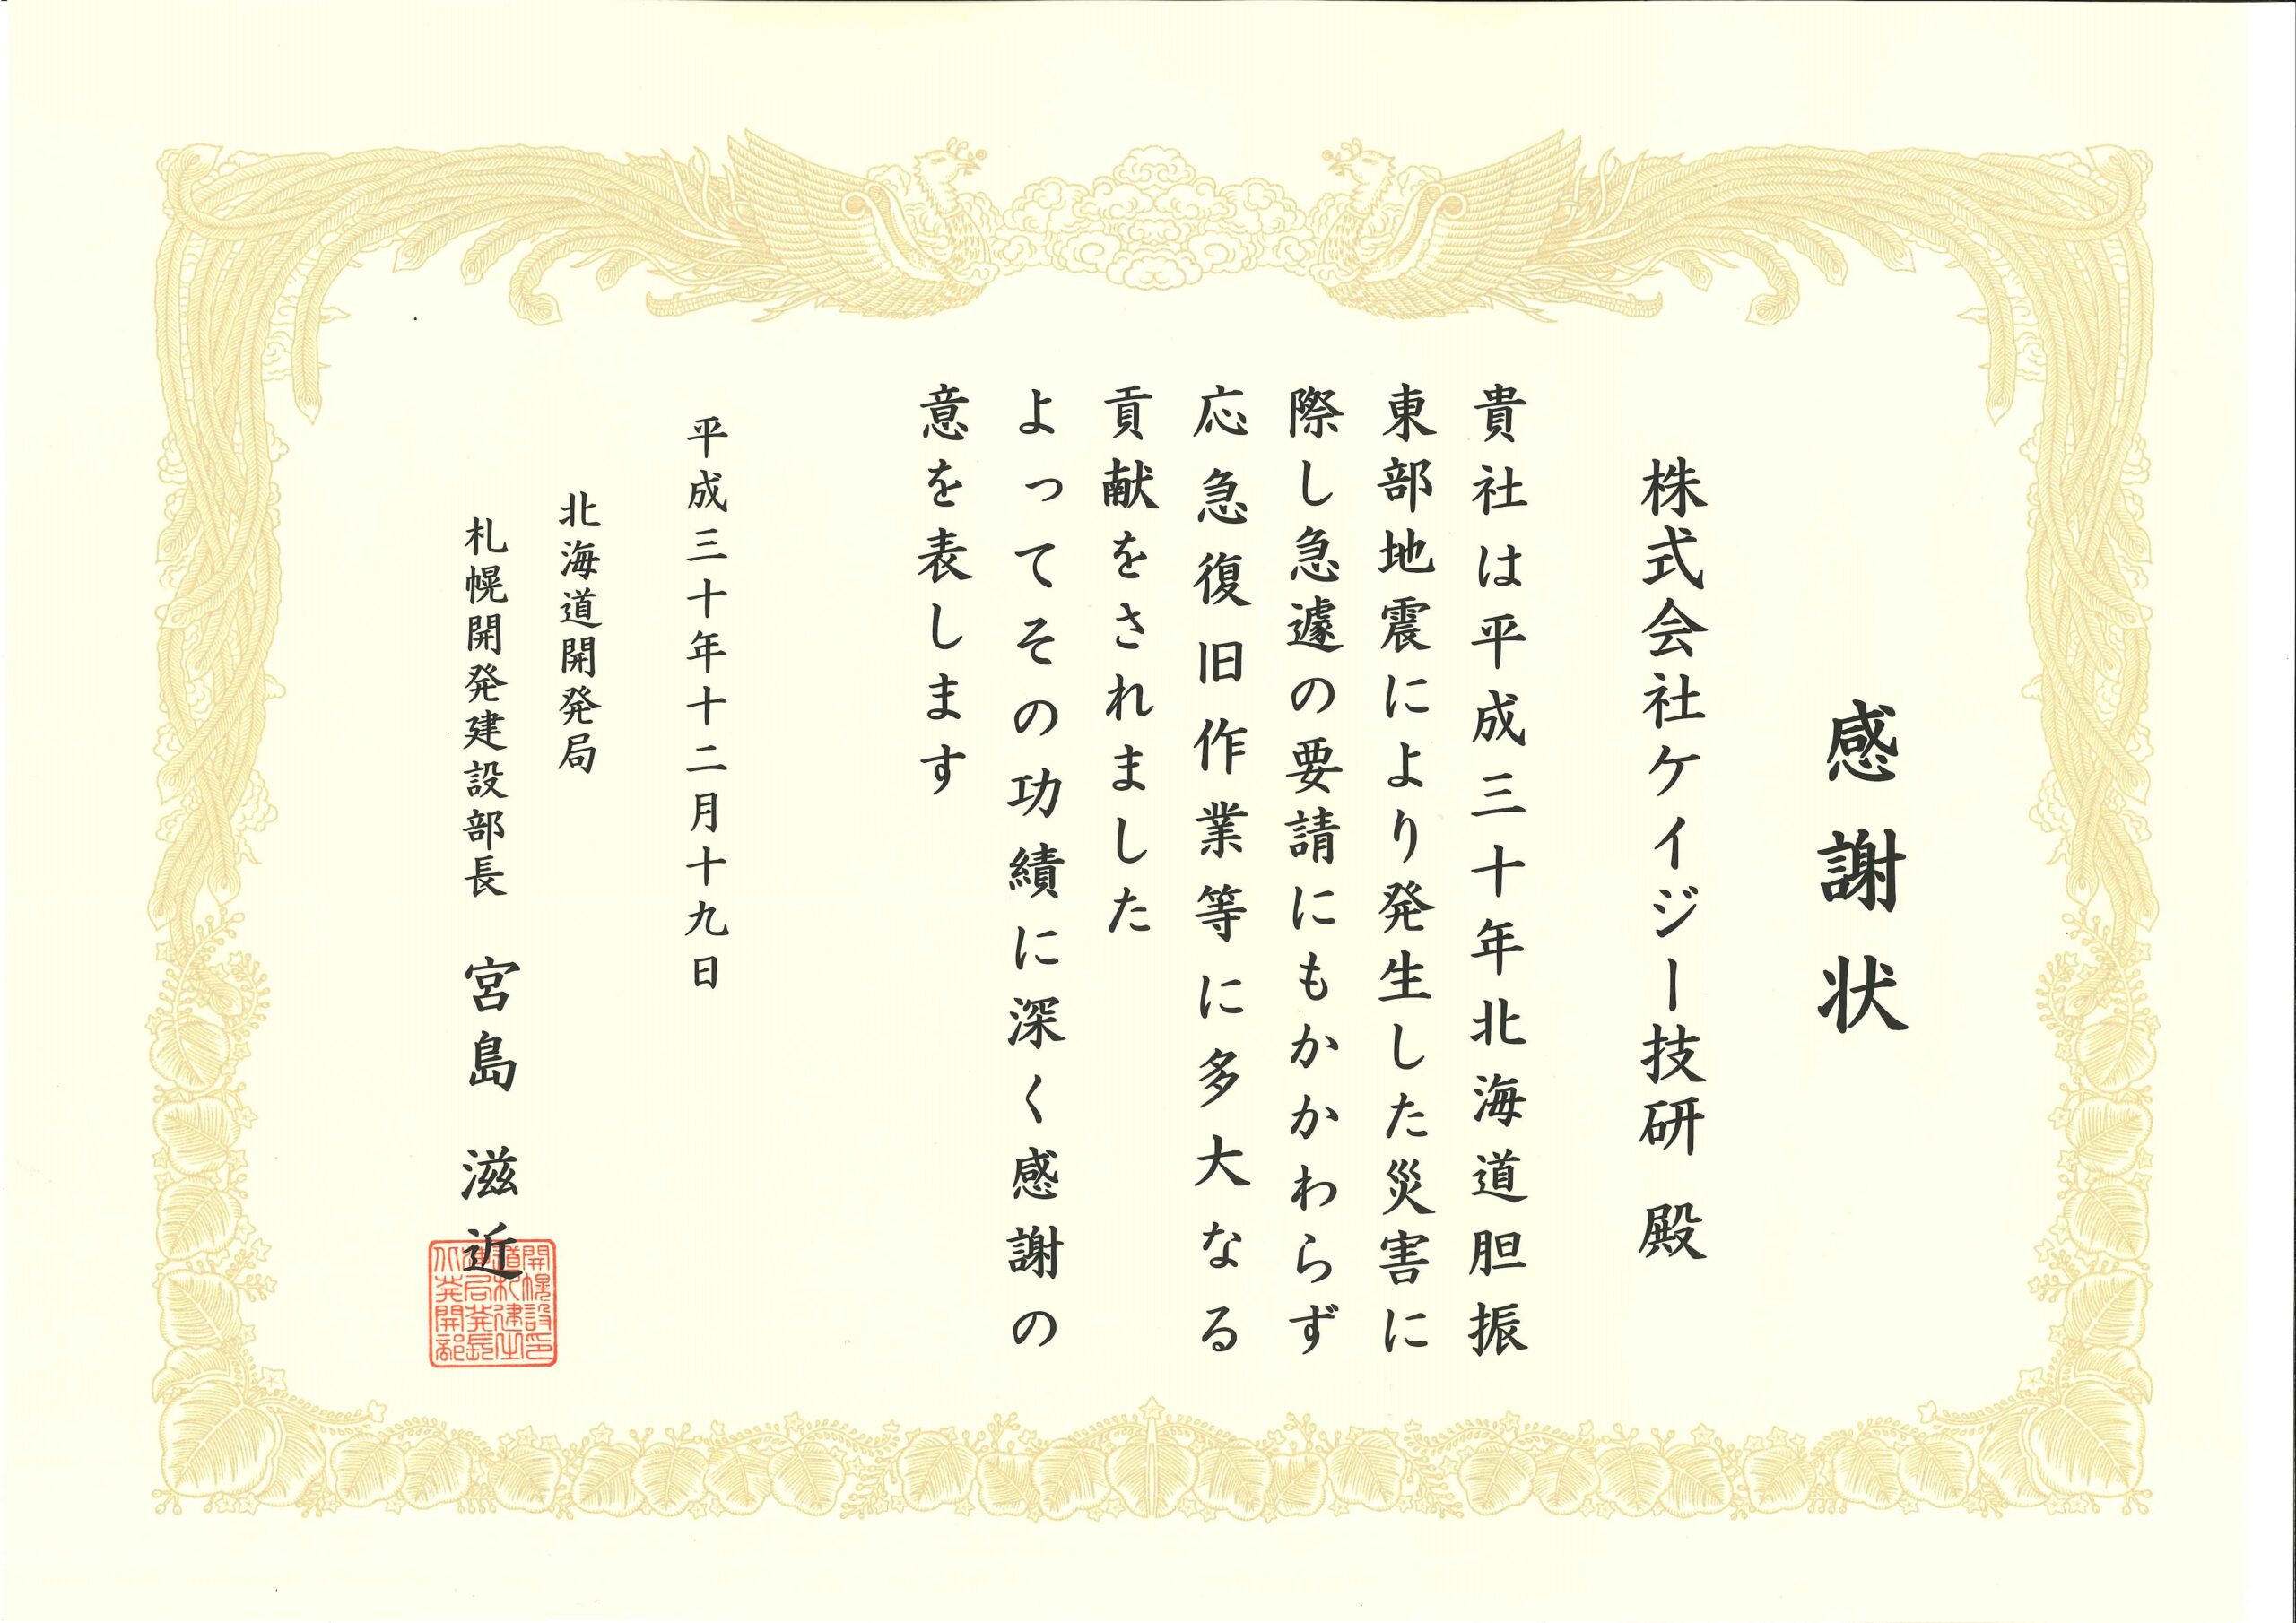 感謝状
株式会社ケイジー技研 殿
貴社は平成三十年北海道胆振
東部地震により発生した災害に
際し急遽の要請にもかかわらず
応急復旧作業等に多大なる
貢献をされました
よってその功績に深く感謝の
意を表します
平成三十年十二月十九日
北海道開発局
札幌開発建設部長 宮島 滋近